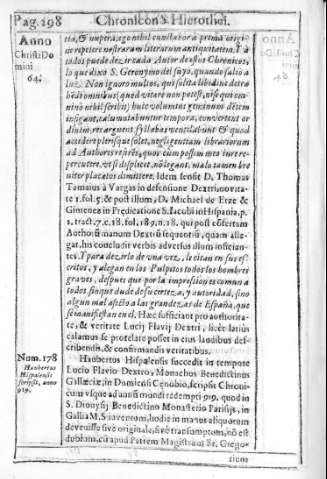 Pag. 298 Chronicon S. Hierothei.
Anno
Christi Do
mini
64.
tia, & nupera, ego nihil cunctatoră prima origi
ne repetere nostrarum literarum antiquitatem. Y à
todos puede dezir cada Autor destos Chronicos,
lo que dixo S. Geronymo del suyo, quando salio a
luz. Non ignoro multos, qui solita libidine detra
hẽdi omnibus (quod vitare non potest, nisi qui om-
nino nihil scribit) huic volumini genuinum dẽtem
infigant, calumniabuntur tempora, convertent or
dinem, res arguent, syllabas ventilabunt & quod
accidere plerisque solet, negligentiam librariorum
ad Authores referẽt, quos cum possim meo iure re-
percutere, vt si displicet, nõ legant, malo tamen bre
viter placatos dimittere. Idem sensit D. Thomas
Tamaius à Vargas in defensione Dextri, novita-
te 1. fol. 5. & post illum, D. Michael de Erze &
Gimenez in Predicatione S. Iacobi in Hispania, p.
1. tract. 7. c. 18. fol. 189. n. 18. qui post cõsertam
Authorũ manum Dextrũ sequentiũ, quam alle-
gat, his concludit verbis adversus illum insisten-
tes. Y para dezirlo de vna vez, le citan en sus es-
critos, y alegan en los Pulpitos todos los hombres
graves, despues que por la impression es comun a
todos, sin que dude de su certeza, y autoridad, sino
algun mal afecto a las grandezas de España, que
se manifiestan en el. Hæc sufficiant pro authorita-
te, & veritate Lucij Flavij Dextri, licèt latiùs
calamus se protelare posset in eius laudibus des-
cribendis, & confirmandis veritatibus.
Num. 178
Haubertus
Hispalensis
scripsit, anno
919.
Haubertus Hispalensis succedit in tempore
Lucio Flavio Dextro, Monachus Benedictinus
Gallæciæ, in Domicusi Cenobio, scripsit Chroni-
cum vsque ad annũ mundi redempti 919. quod in
S. Dionysij Benedictino Monasterio Parisijs, in
Gallia M.S. invenitur, hodie in manus aliquorum
devenisse sivè originale, sivè transumptum, nõ est
dubium, circa quod Patrem Magistrum Fr. Grego-
rium